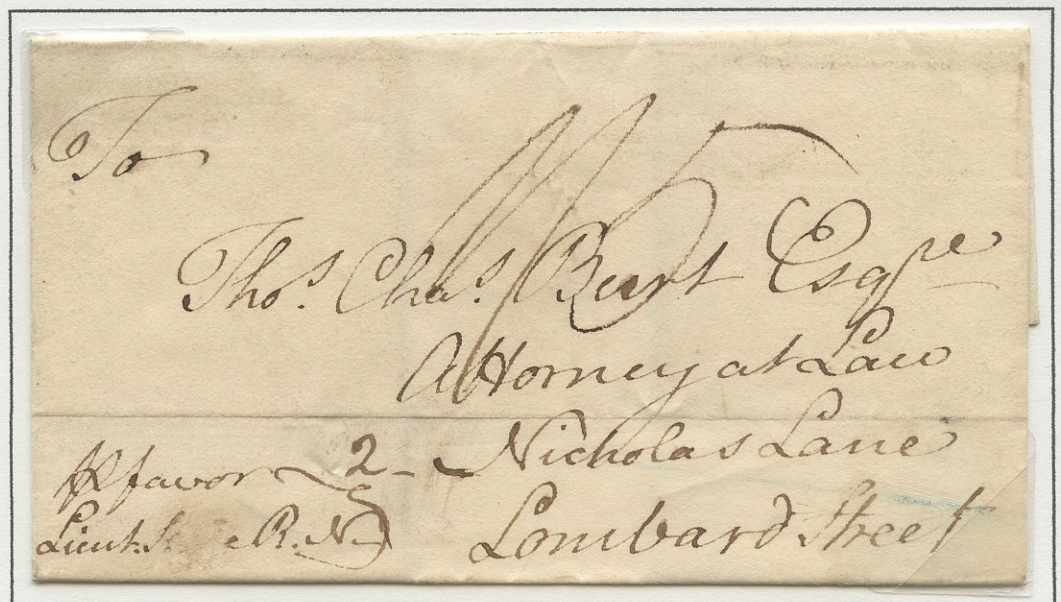 To
Thos. Chas. Burt Esqre
Attorney at Law
Nicholas Lane
Lombard Street
favor 2
Lieut. R. N.